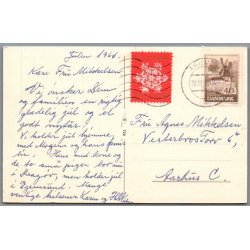 Julen 1966.
Kære Fru Mikkelsen
Vi ønsker Dem
og familien en rigtig
glædelig jul og et
godt nytår.
Vi holder jul hjemme
med Mogens og hans
familie. Hans med kone og
to små piger bor nu
i men holder jul
i Egernsund. Mange
venlige hilsner Karen og
DANMARK
Fru Agnes Mikkelsen
Vesterbros Torv 6,
Aarhus C.